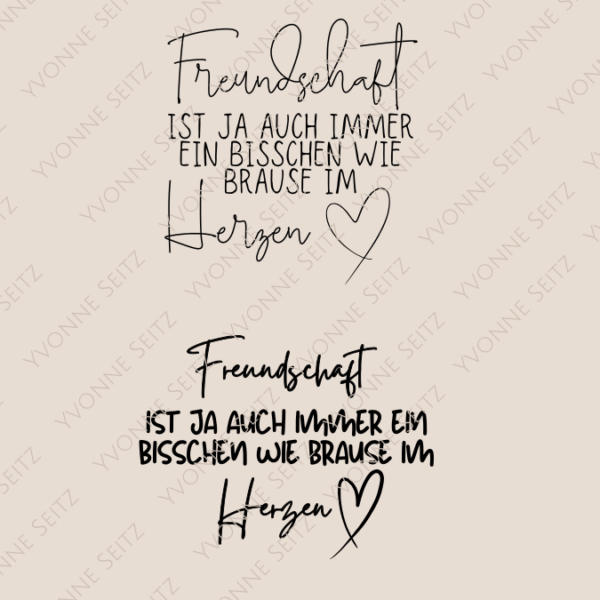 Freundschaft
IST JA AUCH IMMER
EIN BISSCHEN WIE
BRAUSE IM
Herzen
Freundschaft
IST JA AUCH IMMER EIN
BISSCHEN WIE BRAUSE IM
Herzen
YVONNE SEITZ